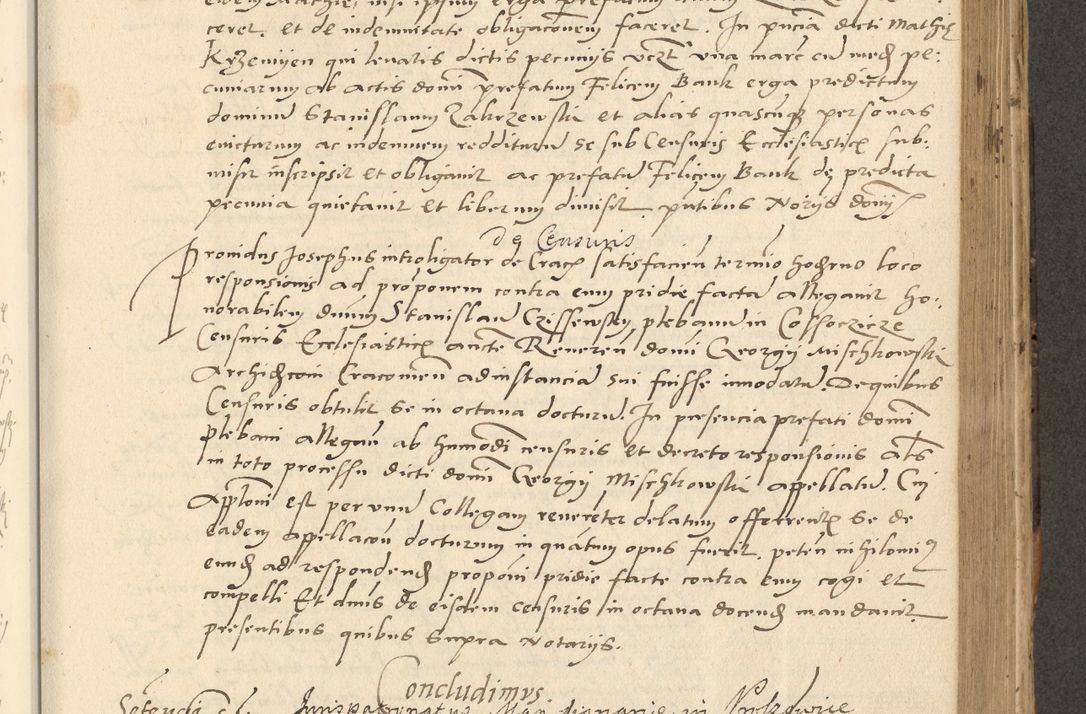 ceret. et de indemnitate obligacōnem faceret. In pn̄cia dicti Mathię
Krzemyen qui levatis dictis pecuniis vczt una marc cū mediā pe:
cuniarum ab actis domī prefatum Felicem Bank erga predictum
dominū Stanislaum Zakrzewski et alias quascunqz personas
evicturum ac indemnem redditurū se sub Censuris Ecclesiasticꝭ sub:
misit inscripsit et obligavit ac prefatū Felicem Bank de predicta
pecunia quietavit et liberum dimisit. pntibus Noriis domī
De Censuris
Providus Josephus introligator de Cracꝭ satisfacieñ termīo hodierno loco
responsionis ad proponem contra eum pridie facta allegavit ho:
norabilem dnum Stanislaū Czissewsky, plebanū in Colsoczicze
Censuris Ecclesiasticꝭ aucte Revereñ domī Georgii Mischkowski
Archidiconi Cracovień ad instanciā sui fuisse innodatū. De quibus
Censuris obtulit se in octava docturū. In presencia prefati domī
plebani allegavit ab huīnodi censuris et decreto responsionis Acts
in toto processu dicti domī Georgii Mischkowski appellatū. Cui
Appłoni est per unū Collegam reverēter delatum offerentꝭ se de
eadem appellacoñ docturum in quātum opus fuerit. peteñ nihilomi9
eund ad respondend proponi pridie facte contra eum cogi et
compelli Et dnus de eisdem censuris in octava docend mandavit.
presentibus quibus supra Notariis.
Concludimus
Jurispatronatus in Prokowie